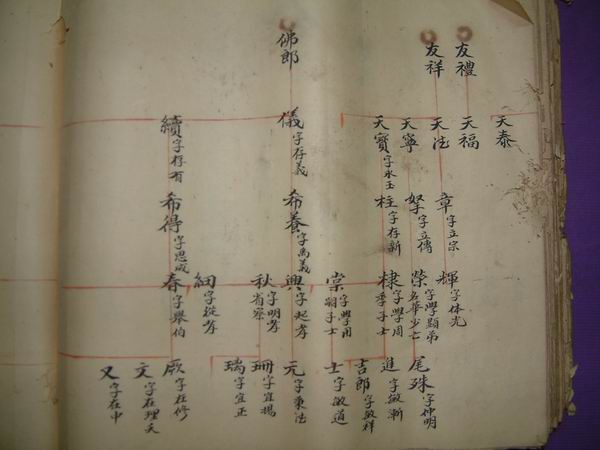 友禮
友祥
佛郎
天泰
天福
天法
天寧
天寶 字永玉
儀 字存義
續 字存有
章 字立宗
拏 字立傳
柱 字存新
希養 字為義
希得 字思成
輝 字体光
榮 字學顯弟 名華少亡
棣 字學周 季子士
棠 字學周 朝子士
興 字起孝
秋 字明孝 省察
細 字從孝
春 字舉伯
尾殊 字仲明
進 字敏漸
吉郎 字敏祥
士 字敏道
元 字秉法
珊 字宜揚
瑞 字宜正
厥 字在修
文 字在理
又 字在中